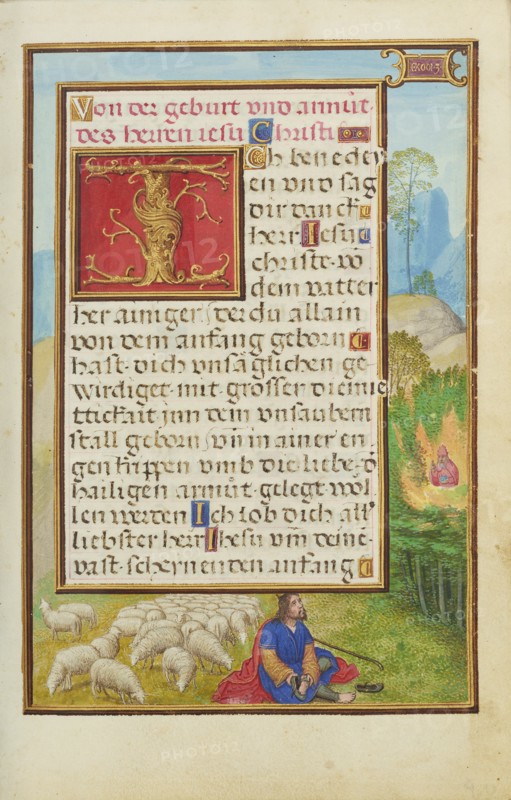 Exodi 3
Von der geburt vnd armůt
des herren iesu Christi
ICh benedey
en vnd sag
dir danck
herr Iesu
christe vō
dem vatter
her ainiger der du allain
von dem anfang geborn
hast dich vnsäglichen ge
wirdiget mit grosser diemie
ttickait jnn dem vnsaubern
stall geborn vn̄ in ainer en
gen krippen vmb die liebe d
hailigen armůt gelegt wöl
len werden Ich lob dich all
liebster herr Ihesu vm̄ deine
vast scheynenden anfang
PHOTO12